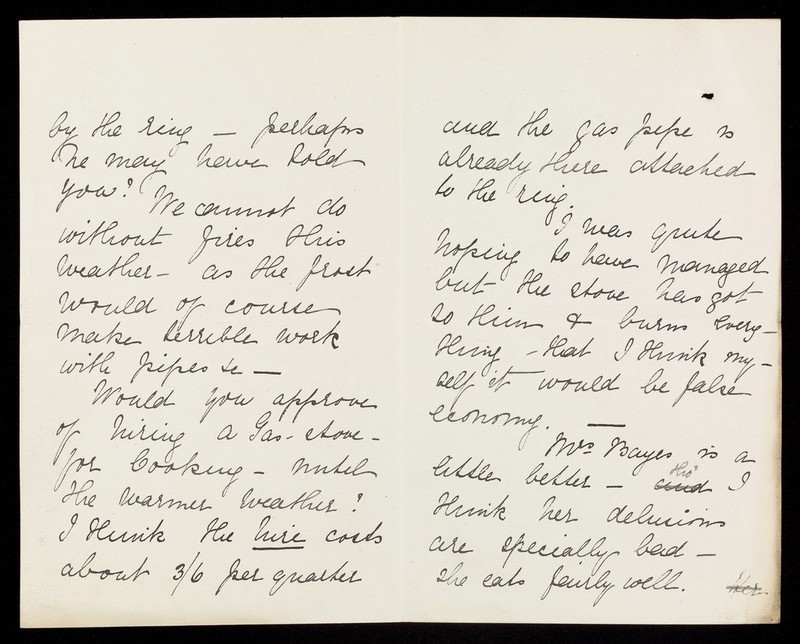 by the ring — perhaps
he may have told
you? We cannot do
without fires this
weather — as the frost
would of course
make terrible work
with pipes &c —
Would you approve
of hiring a Gas-stove -
for Cooking - until
the warmer weather?
I think the hire costs
about 3/6 per quarter
and the gas pipe is
already there attached
to the ring.
I was quite
hoping to have managed
but the stove has got
so thin & burns every-
thing - that I think my-
self it would be false
economy. —
Mrs Bayes is a
little better — and tho' I
think her delusions
are specially bad —
she eats fairly well. Her